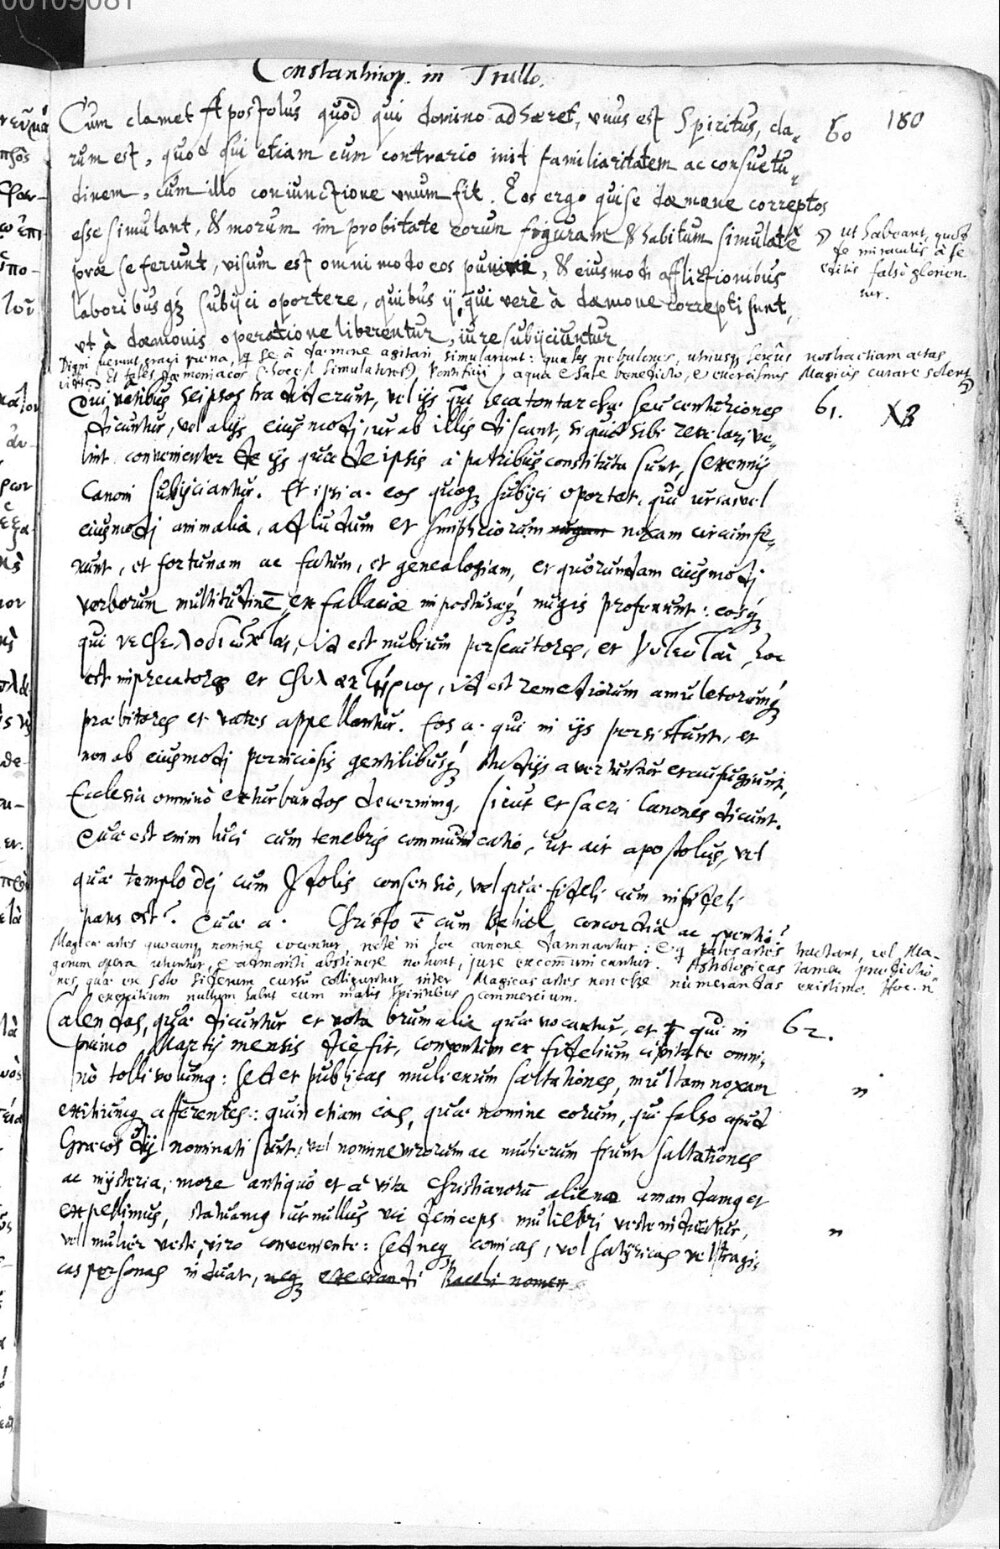 00109081
Constantinop. in Trullo.
180
60
Cum clamet Apostolus quòd qui domino adhæret, unus est Spiritus, cla-
rum est, quòd qui etiam cum contrario init familiaritatem ac consuetu-
dinem, cum illo coniunctione unum fit. Eos ergo qui se dæmone correptos
esse simulant, & morum improbitate eorum figuram & habitum simulatè
præ se ferunt, visum est omni modo eos puniri, & eiusmodi afflictionibus
laboribusqȝ subijci oportere, quibus ij, qui verè à dæmone correpti sunt,
ut à dæmonis operatione liberentur, iure subijciuntur
ut habeant, quod
de miraculis à se
editis falsò glorien-
tur.
Digni verunt gravi pœna, qui se à dæmone agitari simularunt: quales nebulones, nostra etiam ætas
Et tales dæmoniacos (hoc est simulatores) Pontificij aqua & sale benedicto, & exorcismis Magicis curare solent
61.
XB
Qui vatibus seipsos tradiderunt, vel ijs qui hecatontarchæ seu centuriones
dicuntur, vel alijs eiusmodi, ut ab illis discant, si quid sibi revelari ve-
lint convenienter de ijs quæ de ipsis à patribus constituta sunt, sexennij
Canoni subijciantur. Et ipsi a. eos quoqȝ subijci oportet, qui ursas vel
eiusmodi animalia, ad ludum et simpliciorum noxam circumfe-
runt, et fortunam ac fatum, et genealogiam, et quorundam eiusmodi
verborum multitudinē ex fallaciæ imposturæqȝ nugis proferunt: eosqȝ
qui νεφελοδιῶκται, id est nubium persecutores, et γοητευταὶ, hoc
est imprecatores et φυλακτήριοι, id est remediorum amuletorumqȝ
præbitores et vates appellantur. Eos a. qui in ijs persistunt, et
non ab eiusmodi perniciosis gentilibusqȝ studijs avertuntur et aufugiunt,
Ecclesia omninò exturbandos decernimus, sicut et sacri Canones dicunt.
Quæ est enim luci cum tenebris communicatio, ut ait apostolus, vel
quæ templo dei cum Idolis consensio, vel quæ fideli cum infideli
pars est? Quæ a. Christo ē cum Belial concordia ac conventio?
Magicæ artes quocunqȝ nomine vocentur, rectè in hoc canone damnantur: & qui tales artes tractant, vel Ma-
gorum opera utuntur, & admoniti abstinere nolunt, jure excommunicantur. Astrologicas tamen prædictio-
nes, quæ ex solo siderum cursu colliguntur, inter Magicas artes non esse numerandas existimo. Hoc n.
exercitium nullum habet cum malis spiritibus commercium.
62.
Calendas, quæ dicuntur et vota brumalia quæ vocantur, et qui in
primo Martij mensis die fit, conventum ex fidelium civitate omni-
nò tolli volumus: sed et publicas mulierum saltationes, multam noxam
exitiumqȝ afferentes: quin etiam eas, quæ nomine eorum, qui falso apud
Græcos dij nominati sunt, vel nomine virorum ac mulierum fiunt saltationes
ac mysteria, more antiquo et à vita Christianorū aliena amandamus et
expellimus, statuimus ut nullus vir deinceps muliebri veste induatur,
vel mulier veste viro conveniente: sed neqȝ comicas, vel satyricas vel tragi-
cas personas induat, neqȝ execrandi Bacchi nomen